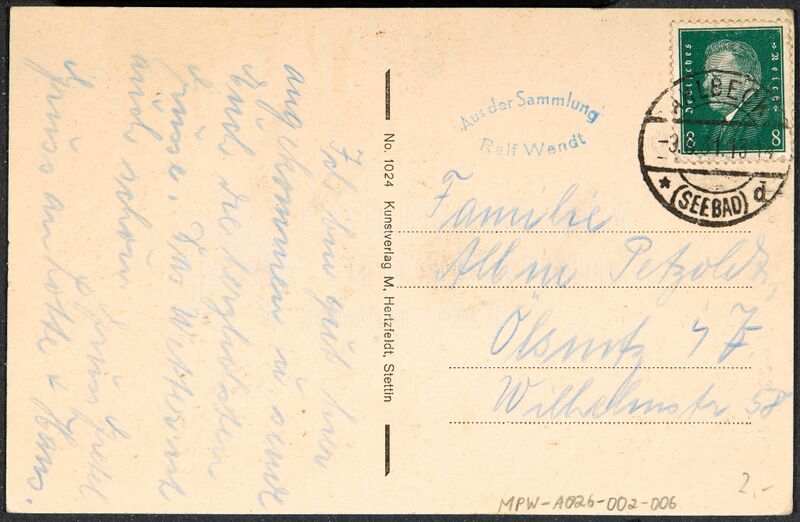 Ich bin gut hier
angekommen u. sende
Euch die herzlichsten
Grüsse. Das Wetter ist
auch schön
Gruss
Gruss an Lotte & Hans.
No. 1024 Kunstverlag M. Hertzfeldt, Stettin
Aus der Sammlung
Ralf Wendt
Deutsches Reich
8 8
AHLBECK
(SEEBAD) d
Familie
Albin Petzoldt,
Ölsnitz i/Z.
Wilhelmstr. 58
2.-
MPW-A026-002-006